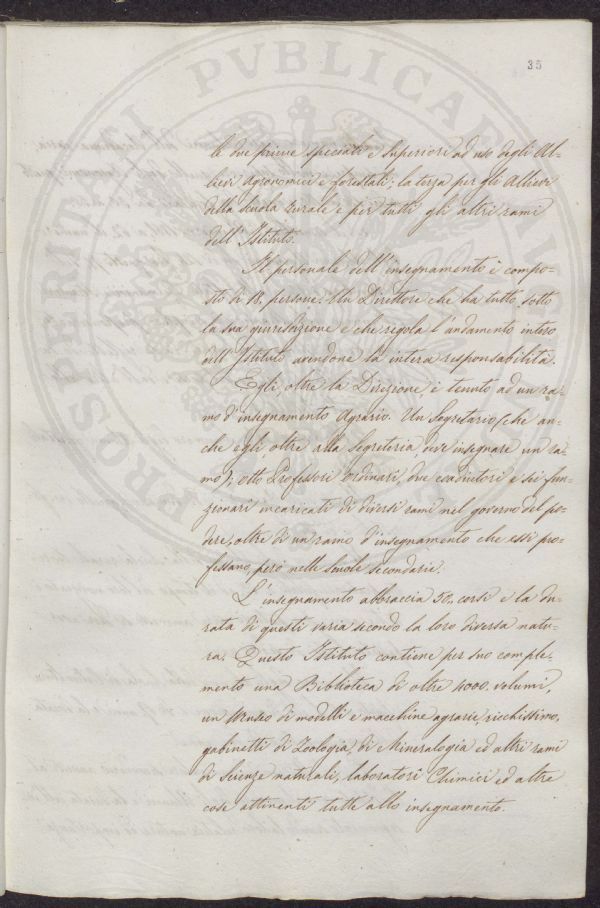 35
le due prime speciali e Superiori ad uso degli Al-
lievi Agronomici e forestali; la terza per gli Allievi
della scuola rurale e per tutti gli altri rami
dell' Istituto.
Il personale dell' insegnamento è compo-
sto di 18. persone. Un Direttore che ha tutto sotto
la sua giurisdizione e che regola l' andamento intero
dell' Istituto avendone la intera responsabilità.
Egli, oltre la Direzione, è tenuto ad un ra-
mo d' insegnamento Agrario. Un Segretario (che an-
che egli oltre alla Segreteria deve insegnare un ra-
mo); otto Professori ordinari, due coadiutori e sei fun-
zionari incaricati di diversi rami nel governo del po-
dere, oltre di un ramo d' insegnamento che essi pro-
fessano però nelle Scuole secondarie.
L' insegnamento abbraccia 50. corsi e la du-
rata di questi varia secondo la loro diversa natu-
ra. Questo Istituto contiene per suo comple-
mento una Biblioteca di oltre 4000. volumi,
un Museo di modelli e macchine agrarie, ricchissimo,
gabinetti di Zoologia, di Mineralogia ed altri rami
di scienze naturali, laboratori Chimici ed altre
cose attinenti tutte allo insegnamento.
PROSPERITATI PVBLICAE